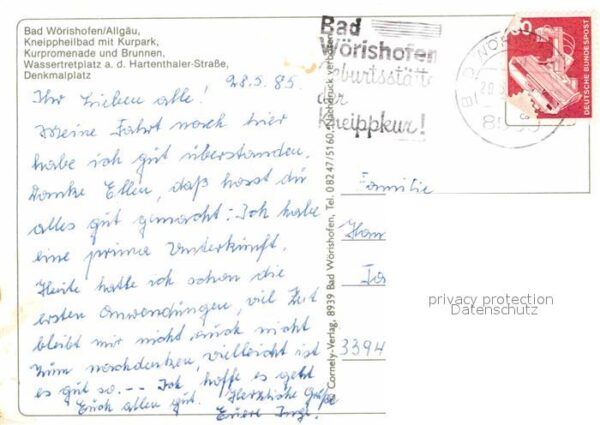 Bad Wörishofen/Allgäu,
Kneippheilbad mit Kurpark,
Kurpromenade und Brunnen,
Wassertretplatz a. d. Hartenthaler-Straße,
Denkmalplatz
28.5.85.
Ihr Lieben alle!
Meine Fahrt nach hier
habe ich gut überstanden.
Danke Ellen, daß hast du
alles gut gemacht. Ich habe
eine prima Unterkunft.
Heute hatte ich schon die
ersten Anwendungen, viel Zeit
bleibt mir nicht auch nicht
zum nachdenken, vielleicht ist
es gut so. -- Ich hoffe es geht
Euch allen gut. Herzliche Grüße
Eure
Cornely-Verlag, 8939 Bad Wörishofen, Tel. 0 82 47/51 60, Nachdruck verboten
Bad
Wörishofen
Geburtsstätte
der
Kneippkur!
DEUTSCHE BUNDESPOST
Familie
3394
privacy protection
Datenschutz